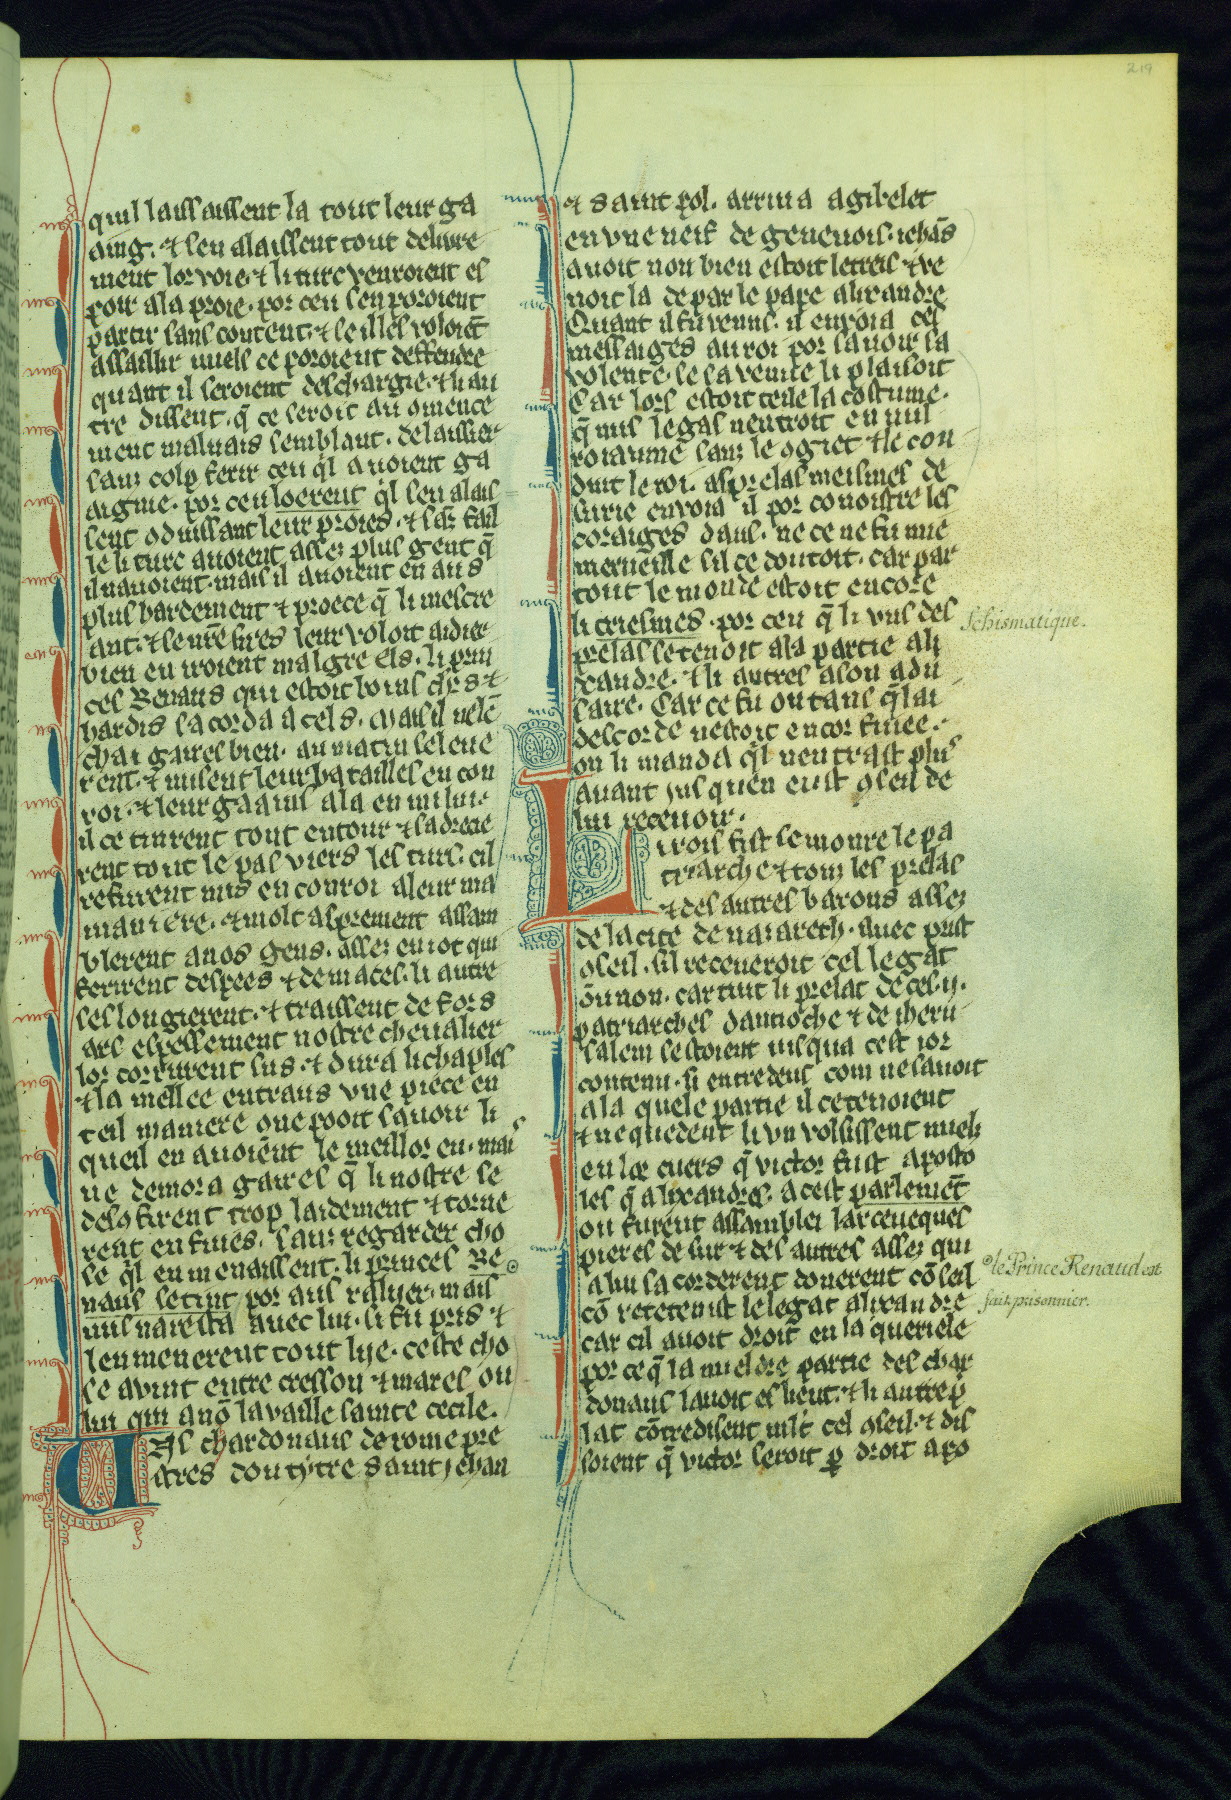 219
quil laissaissent la tout leur ga
aing. et sen alaissent tout delivre
ment lor voie. et li turc venroient es
poir a la proie. por ceu sen poroient
partir sans content. et se il les voloiēt
assaillir miels ce poroient deffendre
quant il seroient deschargie. et li au
tre dissent. q̄ ce seroit au omence
ment malvais semblant. de laissier
sanz colp ferir ceu q̄l avoient ga
aignie. por ceu loerent q̄l sen alais
sent oduissant leur proies. et sāz fail
le li turc avoient assez plus gent q̄
il navoient. mais il avoient en aus
plus hardement et proece q̄ li mescre
ant. et se nr̄e sires leur voloit aidier
bien en iroient malgre els. li prin
ces Renaus qui estoit boins chr̄s et
hardis sacorda a cels. mais il nele
chai gaires bien. au matin seleve
rent. et misent leur batailles en con
roi. et leur gaains a la en milui.
il ce tinrent tout entour et sadrecie
rent tout le pas viers les turs. cil
refurent mis en conroi a leur ma
maniere. et molt asprement assam
blerent a nos gens. assez en iot qui
ferirent despees et de maces. li autre
ses longierent. et traissent de fors
ars espessement nostre chevalier
lor corrurent sus. et dura li chaples
et la mellee entraus une piece en
teil maniere que pooit savoir li
queil en avoiēnt le meillor en. mais
ne demora gaires q̄ li nostre se
desofirent trop laidement et torne
rent en fuies. sanz regarder cho
se q̄l en menaissent. li princes Re
naus se tint por aus ralijer. mais
nus naresta avec lui. si fu pris et
len menerent tout lije. ceste cho
se avint entre cresson et mares ou
lui qui a nō lavaille sainte cecile.
Uns chardonaus de rome pre
stres dou tytre saint jehan
et saint pol. arriva a gibelet
en une neif de genevois. iehās
avoit non bien estoit letreis et ve
noit la de par le pape alixandre
Quant il fu venus. il envoia ces
messaiges au roi por savoir sa
volente. se sa venue li plaisoit
Car lors estoit teile la costume.
q̄ nus legas nentroit en nul
roiaume sanz le ogiet et le con
duit le roi. as prelas meismes de
surie envoia il por conoistre les
coraiges daus. ne ce ne fu mie
merveille sil ce doutoit. car par
tout le monde estoit encore
li criesmes. por ceu q̄ li uns des
prelas se tenoit a la partie ali
xandre. et li autres a son adu
saire. Car ce fu ou tans q̄ lai
descorde nestoit encor finee.
on li manda q̄l nentrast plus
avant jusquen eust oseil de
lui recevoir.
Li rois fist semonre le pa
triarche et touz les prelas
et des autres barons assez
de la cite de nazareth. avec prist
oseil. sil receveroit cel legat
ou non. car tuit li prelat de ces .ij.
patriarches dantioche et de iheru
salem sestoient iusqua cest ior
contenu. si entredeus com ne savoit
a la quele partie il ce tenoient
et nequedent li un volsissent muelz
en lor cuers q̄ victor fust aposto
les q̄ alixandres. a cest parlemēt
ou furent assamblei larceveques
pieres de sur et des autres assez qui
a lui sacorderent donerent cōseil
cō recetenist le legat alixandre
car cil avoit droit en la queriele
por ce q̄ la mueldre partie des char
donaus lavoit eslieut. et li autre p̄
lat cōtredisent mlt cel oseil. et dis
soient q̄ victor seroit p̄ droit apo
Schismatique.
le Prince Renaud est
fait prisonnier.